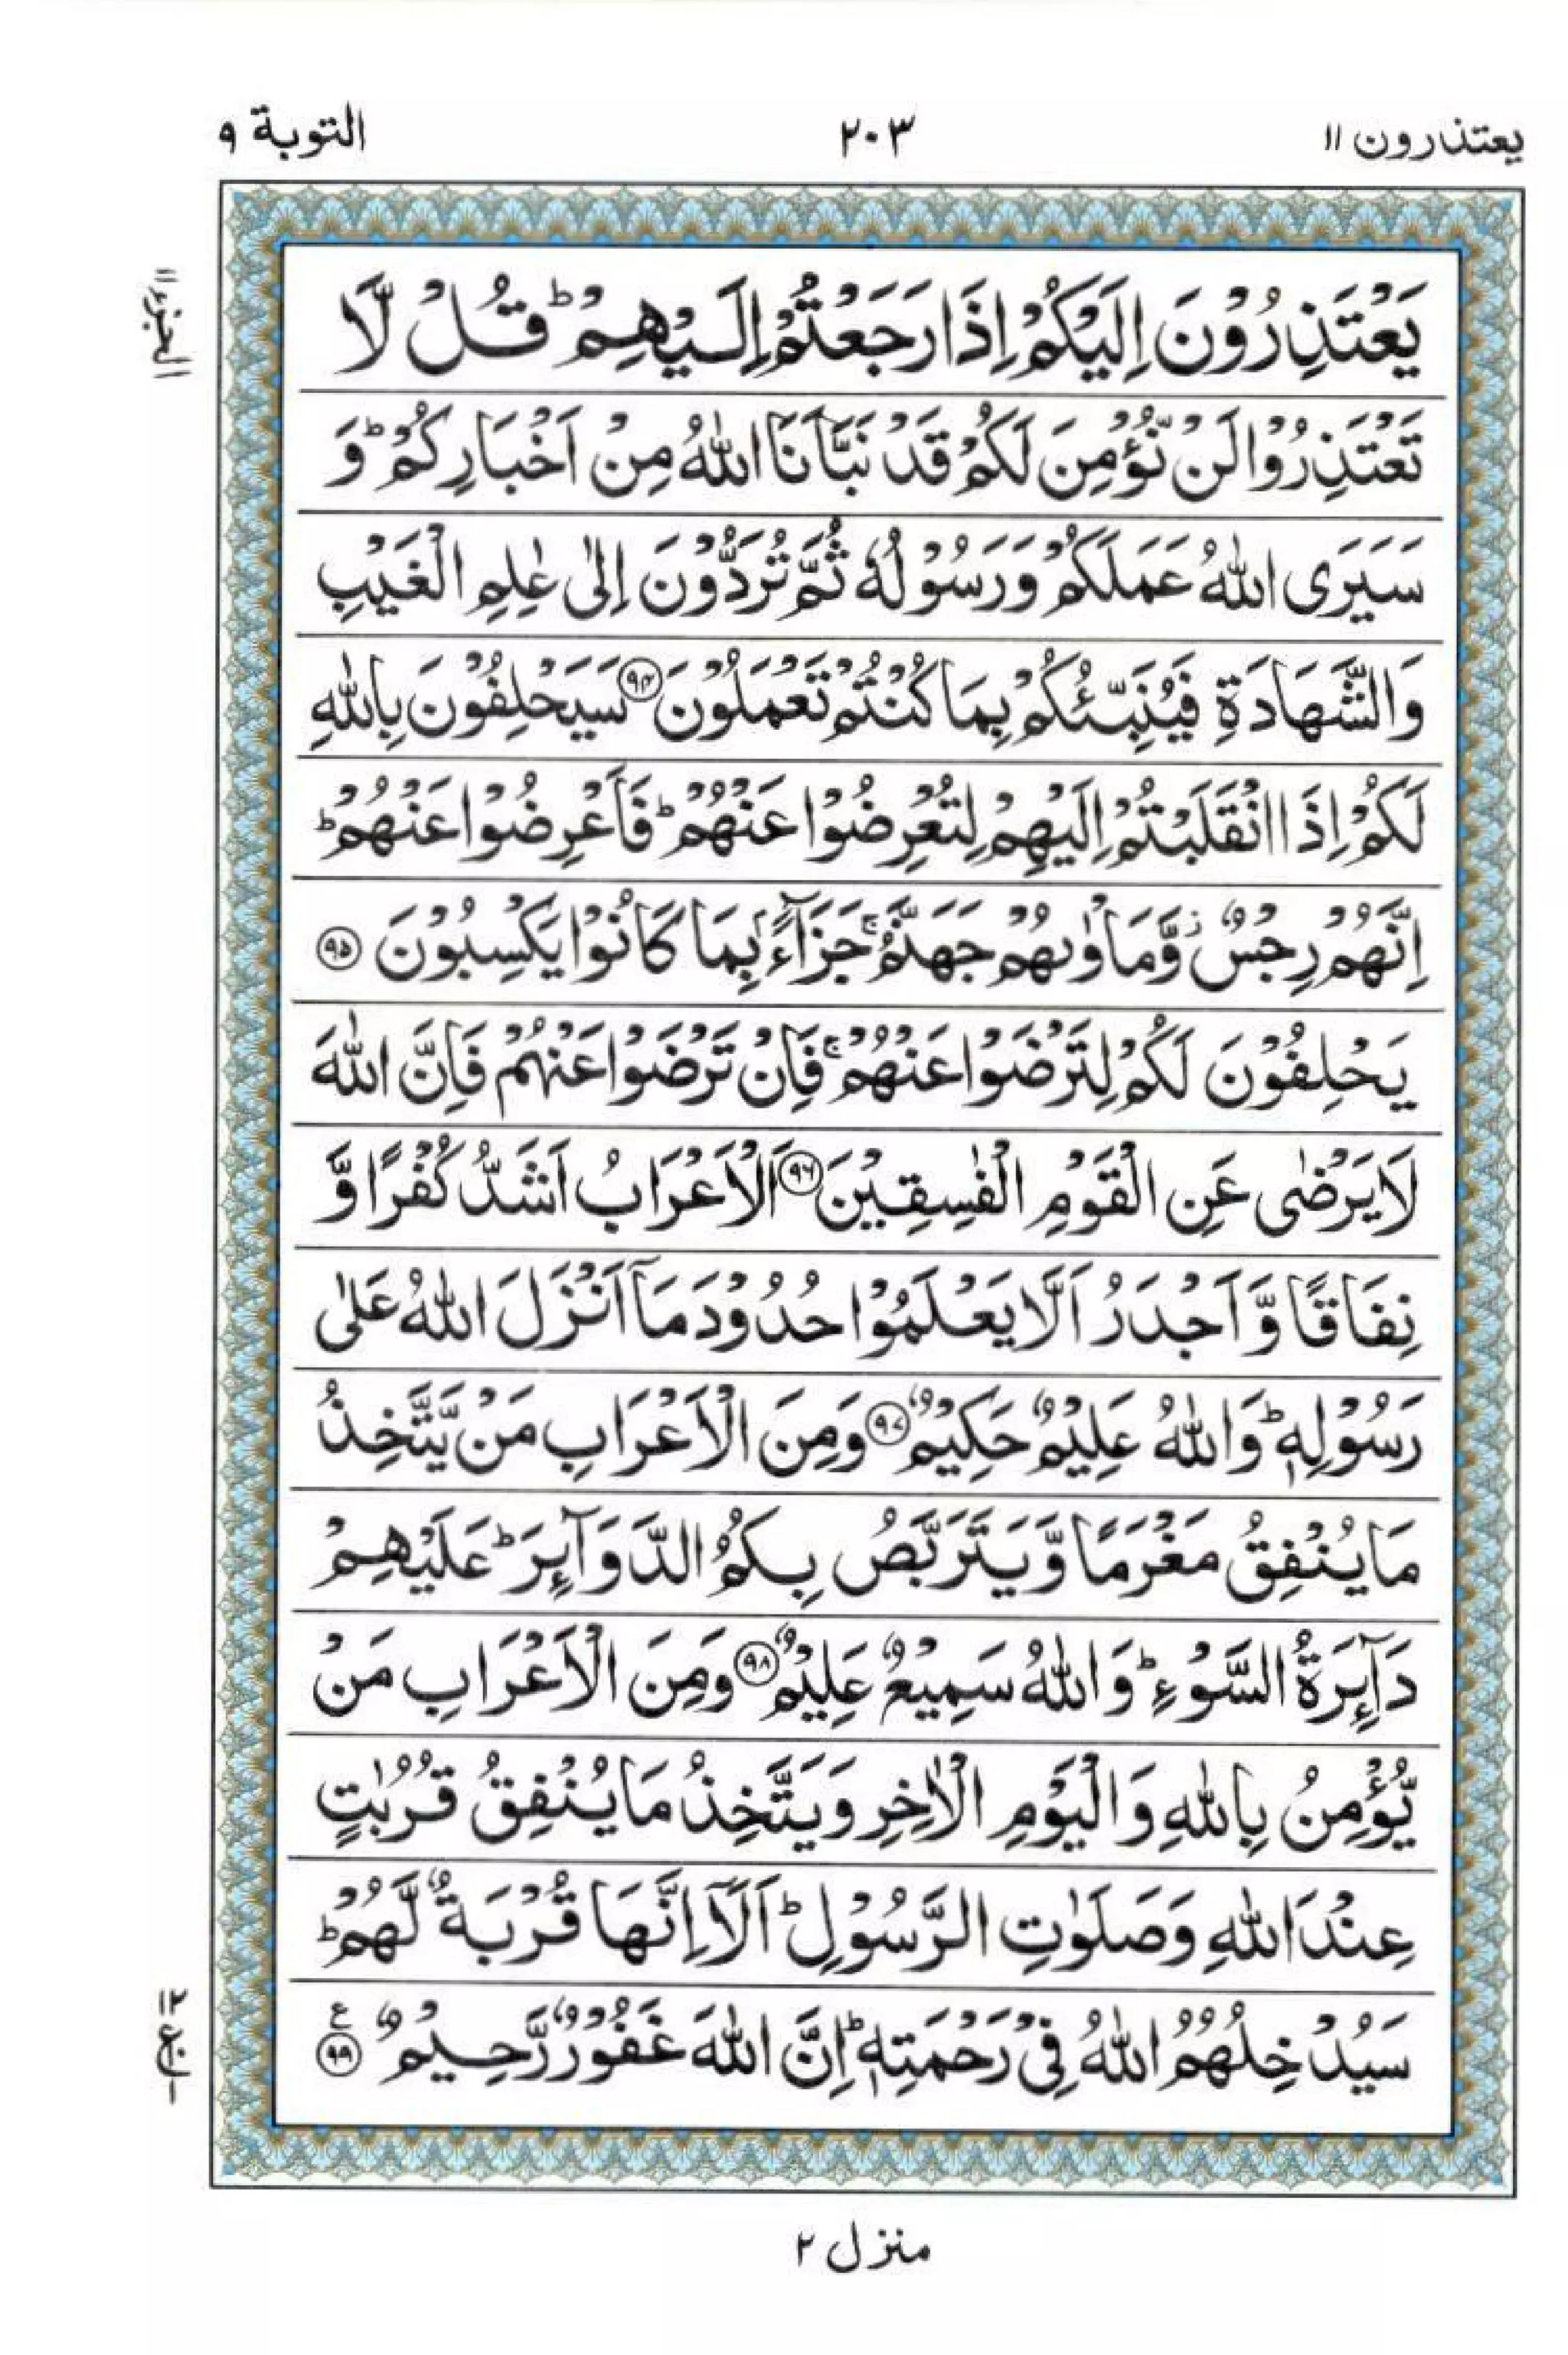 يعتذرون ۱۱
۲۰۳
التوبة ۹
الجزء ۱۱
يَعْتَذِرُوْنَ اِلَيْكُمْ اِذَا رَجَعْتُمْ اِلَـيْهِمْ ؕ قُـلْ لَّا
تَعْتَذِرُوْا لَنْ نُّؤْمِنَ لَكُمْ قَدْ نَبَّاَنَا اللّٰهُ مِنْ اَخْبَارِكُمْ ؕ وَ
سَيَرَى اللّٰهُ عَمَلَكُمْ وَرَسُوْلُهٗ ثُمَّ تُرَدُّوْنَ اِلٰى عٰلِمِ الْغَيْبِ
وَالشَّهَادَةِ فَيُنَبِّـئُكُمْ بِمَا كُنْتُمْ تَعْمَلُوْنَ ۹۴ سَيَحْلِفُوْنَ بِاللّٰهِ
لَكُمْ اِذَا انْقَلَبْتُمْ اِلَيْهِمْ لِتُعْرِضُوْا عَنْهُمْ ؕ فَاَعْرِضُوْا عَنْهُمْ ؕ
اِنَّهُمْ رِجْسٌ ز وَّمَاْوٰىهُمْ جَهَنَّمُ ۚ جَزَآءًۢ بِمَا كَانُوْا يَكْسِبُوْنَ ۹۵
يَحْلِفُوْنَ لَكُمْ لِتَرْضَوْا عَنْهُمْ ۚ فَاِنْ تَرْضَوْا عَنْهُمْ فَاِنَّ اللّٰهَ
لَا يَرْضٰى عَنِ الْقَوْمِ الْفٰسِقِـيْنَ ۹۶ اَلْاَعْرَابُ اَشَدُّ كُفْرًا وَّ
نِفَاقًا وَّاَجْدَرُ اَلَّا يَعْلَمُوْا حُدُوْدَ مَاۤ اَنْزَلَ اللّٰهُ عَلٰى
رَسُوْلِهٖ ؕ وَاللّٰهُ عَلِيْمٌ حَكِيْمٌ ۹۷ وَمِنَ الْاَعْرَابِ مَنْ يَّتَّخِذُ
مَا يُنْفِقُ مَغْرَمًا وَّيَتَرَبَّصُ بِكُمُ الدَّوَآٮِٕرَ ؕ عَلَيْهِمْ
دَآٮِٕرَةُ السَّوْءِ ؕ وَاللّٰهُ سَمِيْعٌ عَلِيْمٌ ۹۸ وَمِنَ الْاَعْرَابِ مَنْ
يُّؤْمِنُ بِاللّٰهِ وَالْيَوْمِ الْاٰخِرِ وَيَتَّخِذُ مَا يُنْفِقُ قُرُبٰتٍ
عِنْدَ اللّٰهِ وَصَلَوٰتِ الرَّسُوْلِ ؕ اَلَاۤ اِنَّهَا قُرْبَةٌ لَّهُمْ ؕ
سَيُدْخِلُهُمُ اللّٰهُ فِىْ رَحْمَتِهٖ ؕ اِنَّ اللّٰهَ غَفُوْرٌ رَّحِيْمٌ ع ۹۹
منزل ۲